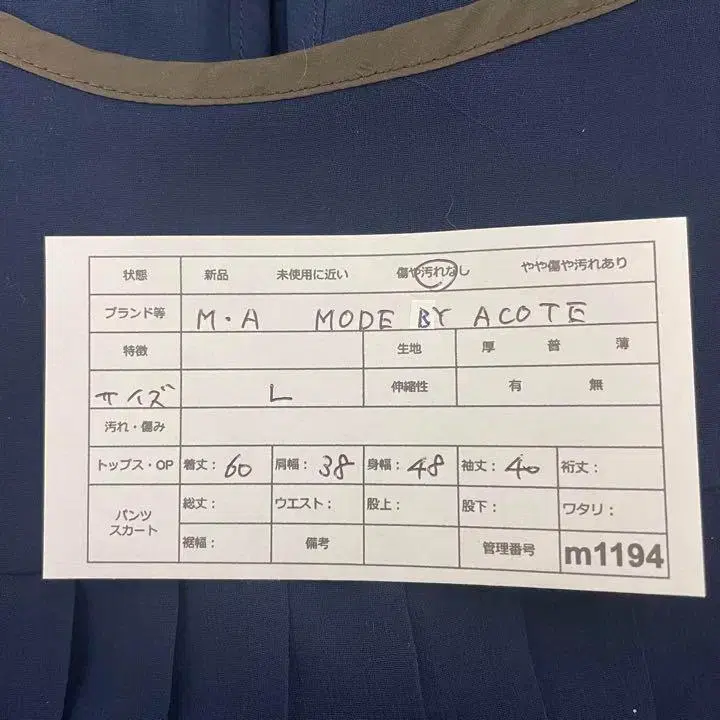 状態 新品 未使用に近い 傷や汚れなし やや傷や汚れあり
ブランド等 M・A MODE BY ACOTE
特徴 生地 厚 普 薄
サイズ L 伸縮性 有 無
汚れ・傷み
トップス・OP 着丈：60 肩幅：38 身幅：48 袖丈：40 裄丈：
パンツ スカート 総丈： ウエスト： 股上： 股下： ワタリ：
裾幅： 備考 管理番号 m1194